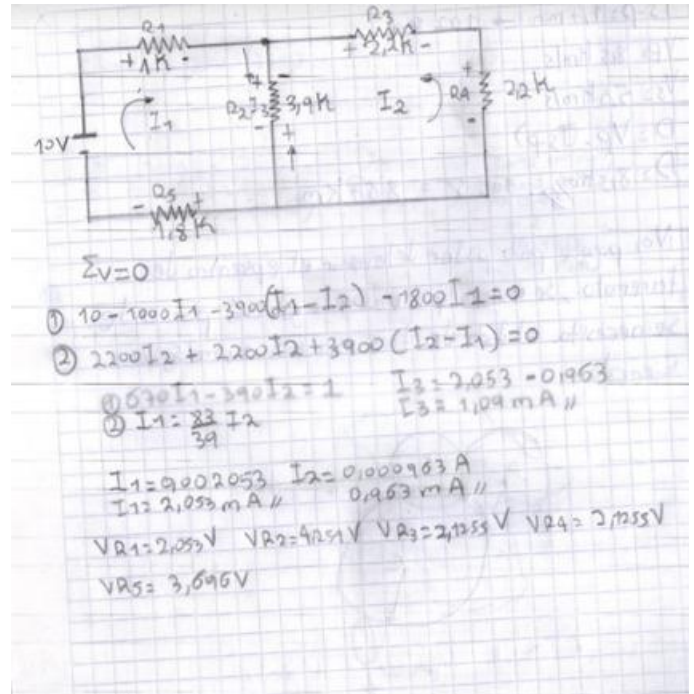 R1
R3
+ 1K -
+ 2,2K -
+
R2 I3 3,9K
I2
R4 2,2K
I1
10V
- R5 +
1,8K
ΣV=0
① 10-1000I1-3900(I1-I2)-1800I1=0
② 2200I2+2200I2+3900(I2-I1)=0
① 670I1-390I2=1 I3=2,053-0,963
② I1=83/39 I2 I3=1,09mA //
I1=0,002053 I2=0,000963A
I1=2,053mA // 0,963mA //
VR1=2,053V VR2=4,251V VR3=2,1255V VR4=2,1255V
VR5=3,696V